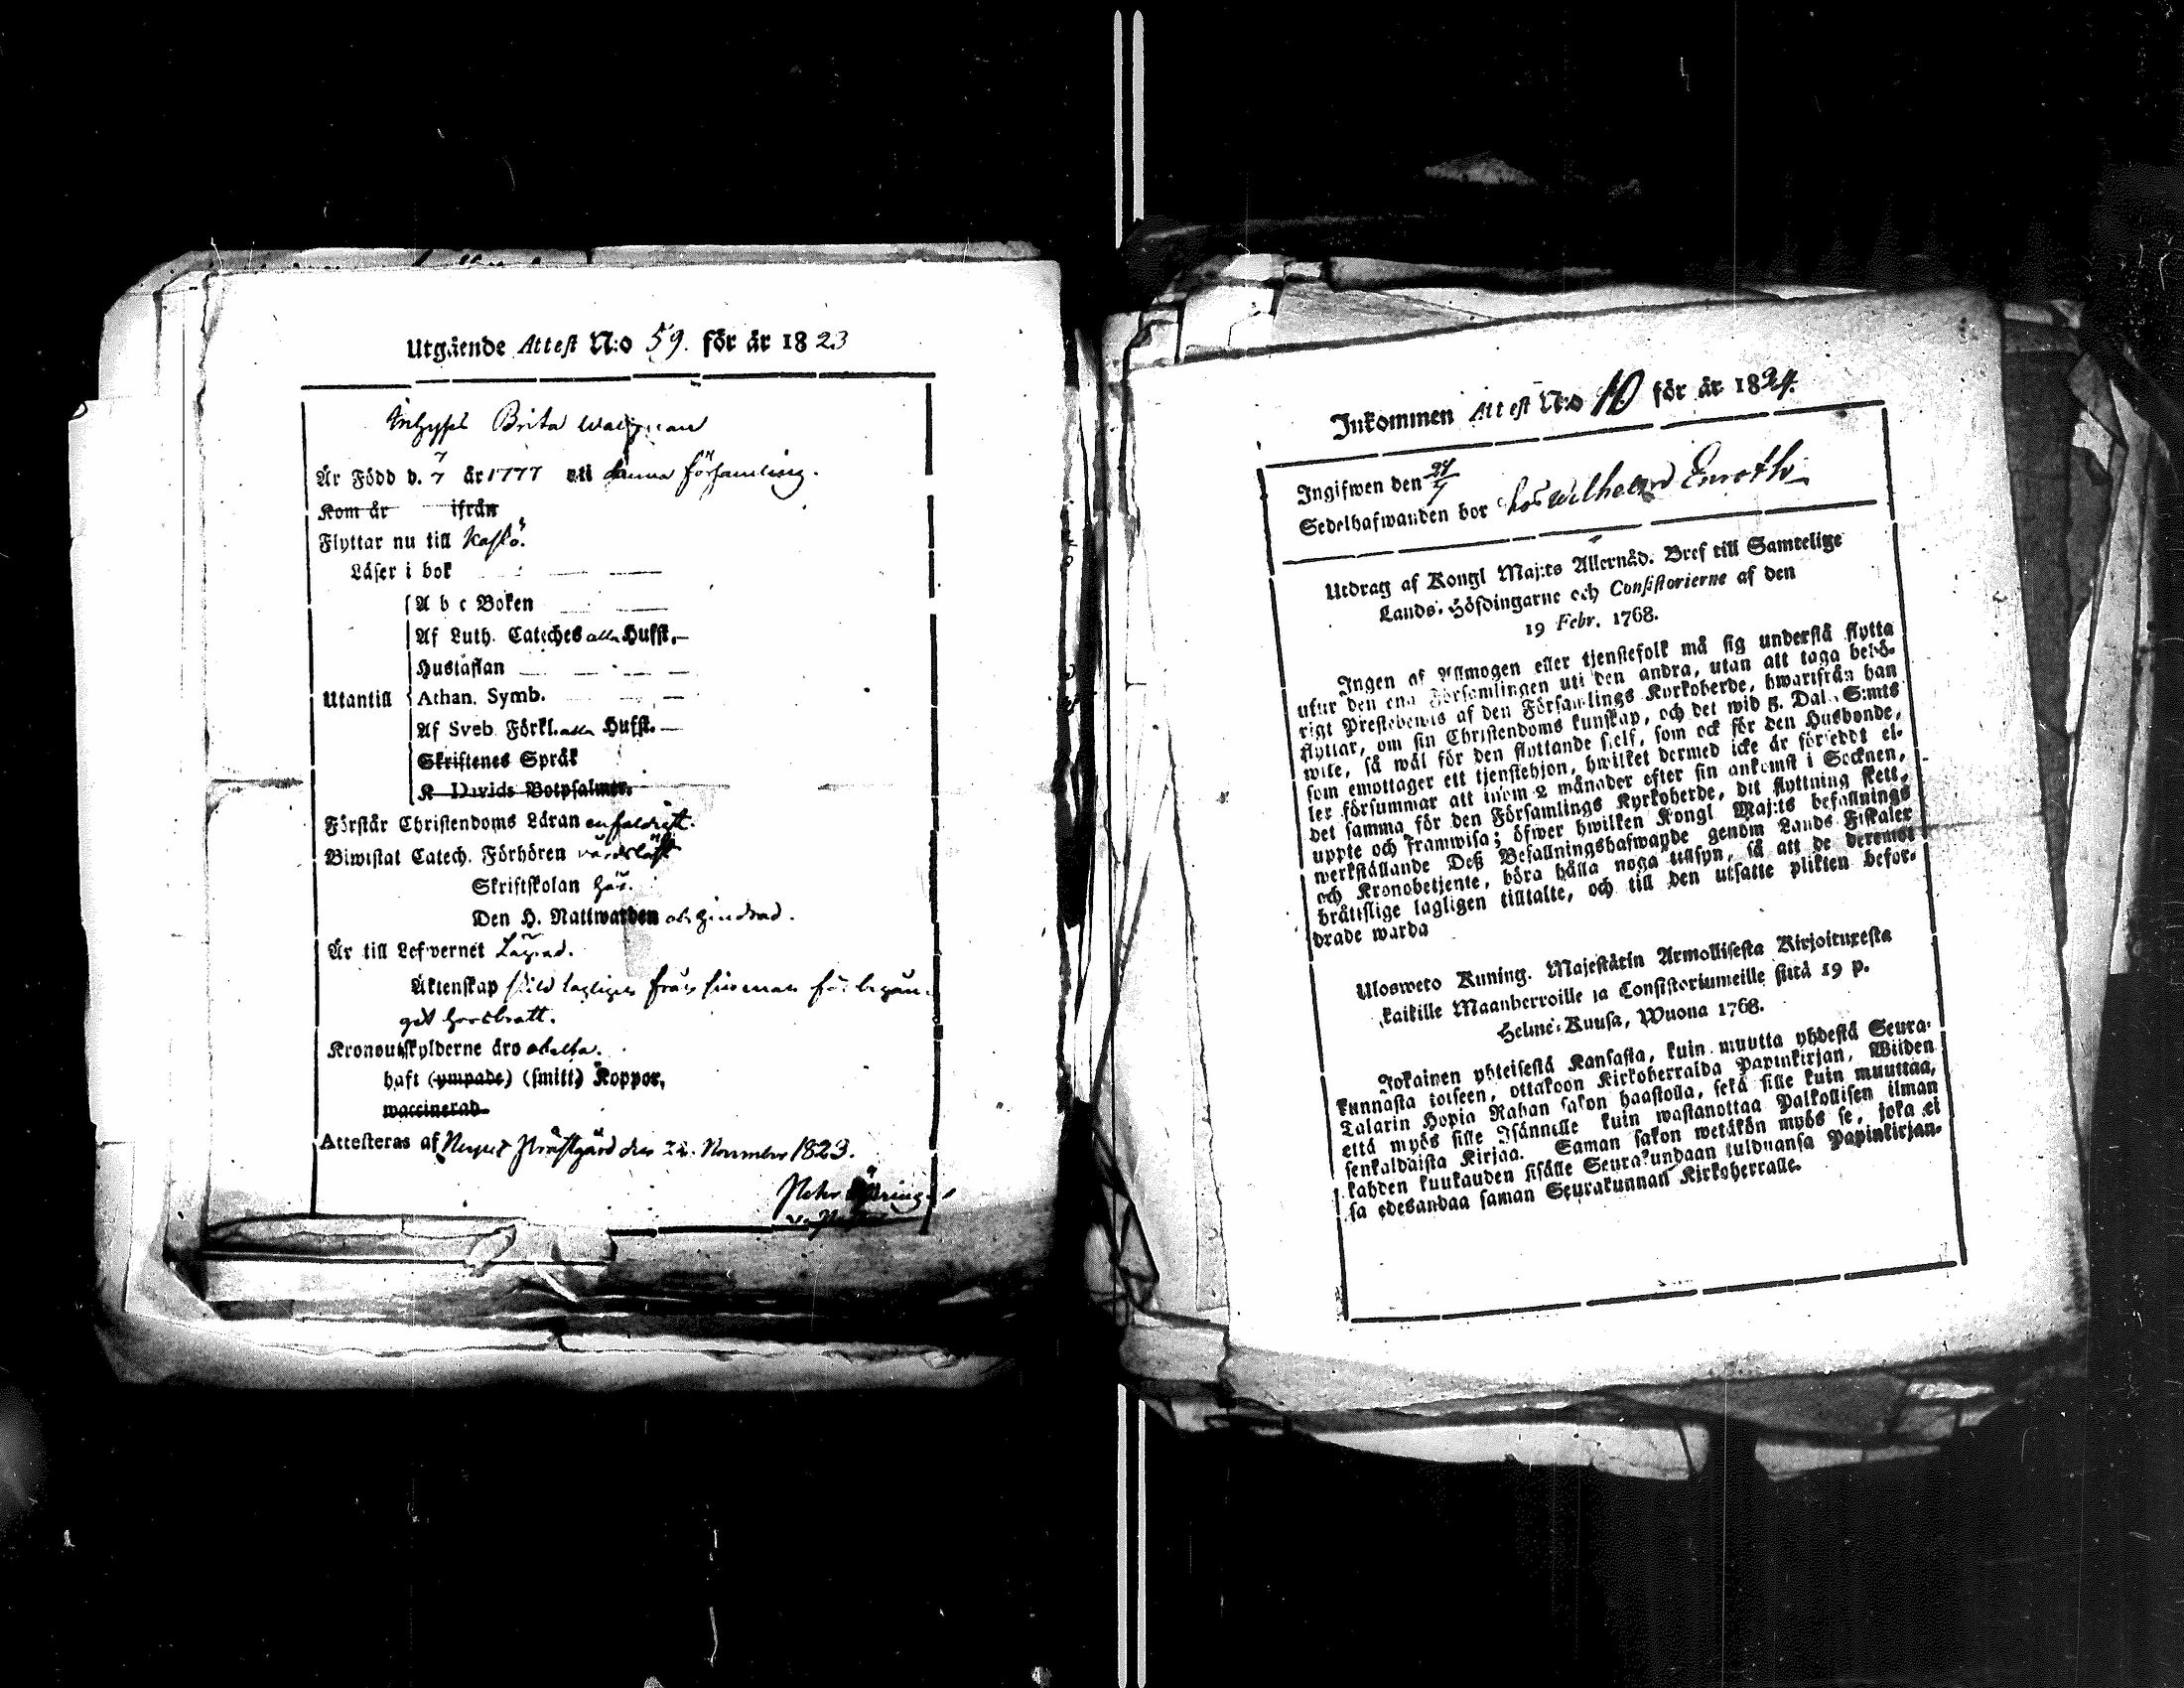 Utgående Attest N:o 59. för år 1823
Inhyses Brita
Är Född d. 7/7 år 1777 uti denna församling.
Kom år ifrån
Flyttar nu till Kaskö.
Läser i bok
A b c Boken
Af Luth. Catechés alla Hufst.
Hustaflan
Utantill Athan. Symb.
Af Sveb Förkl. alla Hufst.
Skriftenes Språk
K Davids Botpsalmer.
Förstår Christendoms Läran enfaldigt.
Biwistat Catech. Förhören vårdslöst
Skriftskolan
Den H. Nattwarden obehindrad.
Är till Lefvernet
Äktenskap skild lagligen från sin man för begån-
get horsbrott.
Kronoutskylderne äro obetta.
haft (ympade) (smitt) Koppor,
waccinerad
Attesteras af Prästgård den 22. November 1823.
Inkommen Attest N:o 10 för år 1824.
Ingifwen den
Sedelhafwanden bor hos Wilhelm Enroth
Utdrag af Kongl Maj:ts Allernåd. Bref till Samtelige
Lands-Höfdingarne och Consistorierne af den
19 Febr. 1768.
Ingen af Allmogen eller tjenstefolk må sig understå flytta
utur den ena Församlingen uti den andra, utan att taga behö-
rigt Prestebewis af den Församlings Kyrkoherde, hwarifrån han
flyttar, om sin Christendoms kunskap, och det wid 5. Dal. S:mts
wite, så wäl för den flyttande sjelf, som ock för den Husbonde,
som emottager ett tjenstehjon, hwilket dermed icke är försedt el-
ler försummar att inom 2 månader efter sin ankomst i Socknen,
det samma för den Församlings Kyrkoherde, dit flyttning skett,
uppte och framwisa; öfwer hwilken Kongl Maj:ts befallnings
werkställande Deß Befallningshafwande genom Lands Fiskaler
och Kronobetjente, böra hålla noga tillsyn, så att de deremot
bråttslige lagligen tilltalte, och till den utsatte plikten befor-
drade warda
Ulosweto Kuning. Majestätin Armollisesta Kirjoituxesta
kaikille Maanherroille ja Consistoriumeille siitä 19 p.
Helme-Kuusa, Wuona 1768.
Jokainen yhteisestä Kansasta, kuin muutta yhdestä Seura-
kunnasta toiseen, ottakoon Kirkoherralda Papinkirjan, Wiiden
Talarin Hopia Rahan sakon haastolla, sekä sille kuin muuttaa,
että myös sille Isännille kuin wastanottaa Palkollisen ilman
senkaldaista Kirjaa. Saman sakon wetäkön myös se, joka ei
kahden kuukauden sisälle Seurakundaan tulduansa Papinkirjan-
sa edesandaa saman Seurakunnan Kirkoherralle.